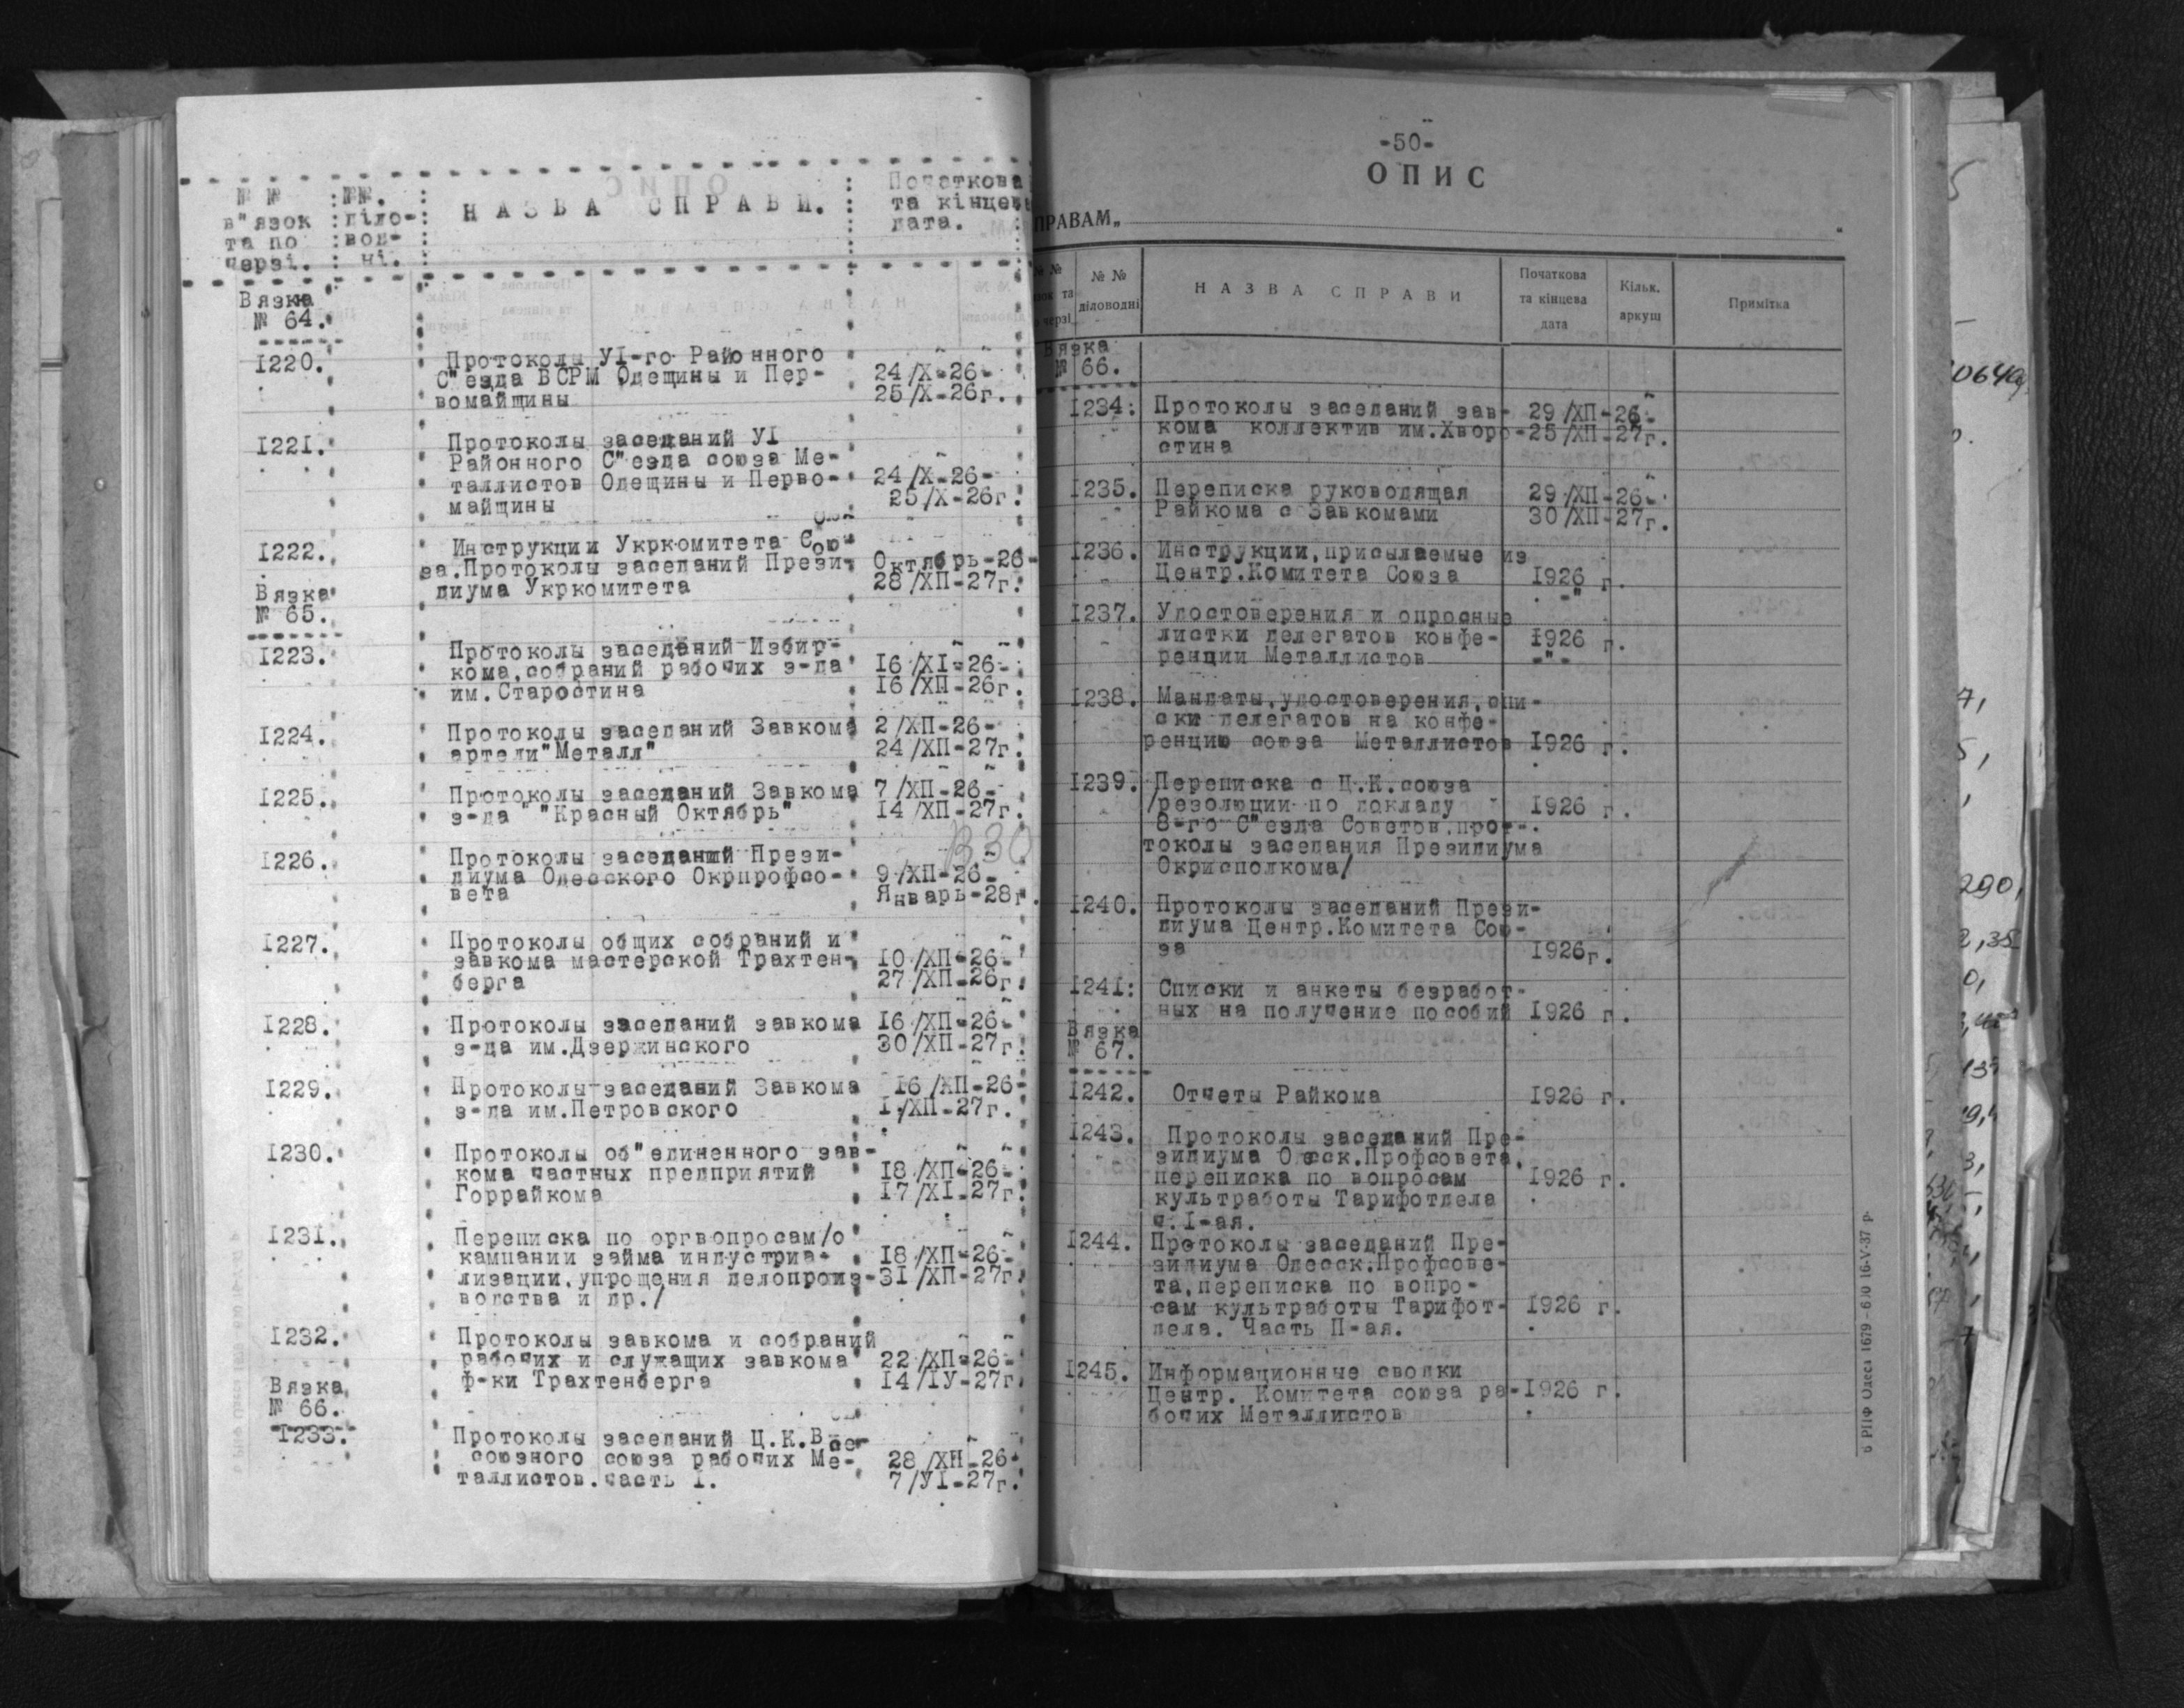 № №
в"язок
та по
черзі.
№№.
діло-
вод-
ні.
НАЗВА СПРАВИ.
Початкова
та кінцева
дата.
Вязка
№ 64.
1220.
Протоколы УІ-го Районного
С"езда ВСРМ Одещины и Пер-
вомайщины
24/Х-26-
25/Х-26г.
1221.
Протоколы заседаний УІ
Районного С"езда союза Ме-
таллистов Одещины и Перво-
майщины
24/Х-26-
25/Х-26г.
1222.
Инструкции Укркомитета Сою-
за.Протоколы заседаний Прези-
диума Укркомитета
Октябрь-26-
28/ХП-27г.
Вязка
№ 65.
1223.
Протоколы заседаний Избир-
кома,собраний рабочих з-да
им.Старостина
16/ХІ-26-
16/ХП-26г.
1224.
Протоколы заседаний Завкома
артели"Металл"
2/ХП-26-
24/ХП-27г.
1225.
Протоколы заседаний Завкома
з-да "Красный Октябрь"
7/ХП-26-
14/ХП-27г.
1226.
Протоколы заседаний Прези-
диума Одесского Окрпрофсо-
вета
9/ХП-26-
Январь-28г.
1227.
Протоколы общих собраний и
завкома мастерской Трахтен-
берга
10/ХП-26-
27/ХП-26г.
1228.
Протоколы заседаний завкома
з-да им.Дзержинского
16/ХП-26-
30/ХП-27г.
1229.
Протоколы заседаний Завкома
з-да им.Петровского
16/ХП-26-
1/ХП-27г.
1230.
Протоколы об"единенного зав-
кома частных предприятий
Горрайкома
18/ХП-26-
17/ХІ-27г.
1231.
Переписка по оргвопросам/о
кампании займа индустриа-
лизации,упрощения делопроиз-
водства и др./
18/ХП-26-
31/ХП-27г.
1232.
Протоколы завкома и собраний
рабочих и служащих завкома
ф-ки Трахтенберга
22/ХП-26-
14/ІУ-27г.
Вязка
№ 66.
1233.
Протоколы заседаний Ц.К.Все-
союзного союза рабочих Ме-
таллистов.часть 1.
28/ХП-26-
7/УІ-27г.
-50-
ОПИС
ПРАВАМ„
№ №
та
черзі
№ №
діловодні
НАЗВА СПРАВИ
Початкова
та кінцева
дата
Кільк.
аркуш
Примітка
Вязка
№ 66.
1234.
Протоколы заседаний зав-
кома коллектив им.Хворо-
стина
29/ХП-26-
25/ХП-27г.
1235.
Переписка руководящая
Райкома с Завкомами
29/ХП-26-
30/ХП-27г.
1236.
Инструкции,присылаемые из
Центр.Комитета Союза
1926 г.
1237.
Удостоверения и опросные
листки делегатов конфе-
ренции Металлистов
1926 г.
-"-
1238.
Мандаты,удостоверения,спи-
ски делегатов на конфе-
ренцию союза Металлистов
1926 г.
1239.
Переписка с Ц.К.союза
/резолюции по докладу
8-го С"езда Советов.прот-
токолы заседания Президиума
Окрисполкома/
1926 г.
1240.
Протоколы заседаний Прези-
диума Центр.Комитета Сою-
за
1926г.
1241.
Списки и анкеты безработ-
ных на получение пособий
1926 г.
Вязка
№ 67.
1242.
Отчеты Райкома
1926 г.
1243.
Протоколы заседаний Пре-
зидиума Одесск.Профсовета,
переписка по вопросам
культработы Тарифотдела
ч.1-ая.
1926 г.
1244.
Протоколы заседаний Пре-
зидиума Одесск.Профсове-
та,переписка по вопро-
сам культработы Тарифот-
дела. Часть П-ая.
1926 г.
1245.
Информационные сводки
Центр. Комитета союза ра-
бочих Металлистов
1926 г.
6 РПФ Одеса 1679 - 600 16-V-37 р.